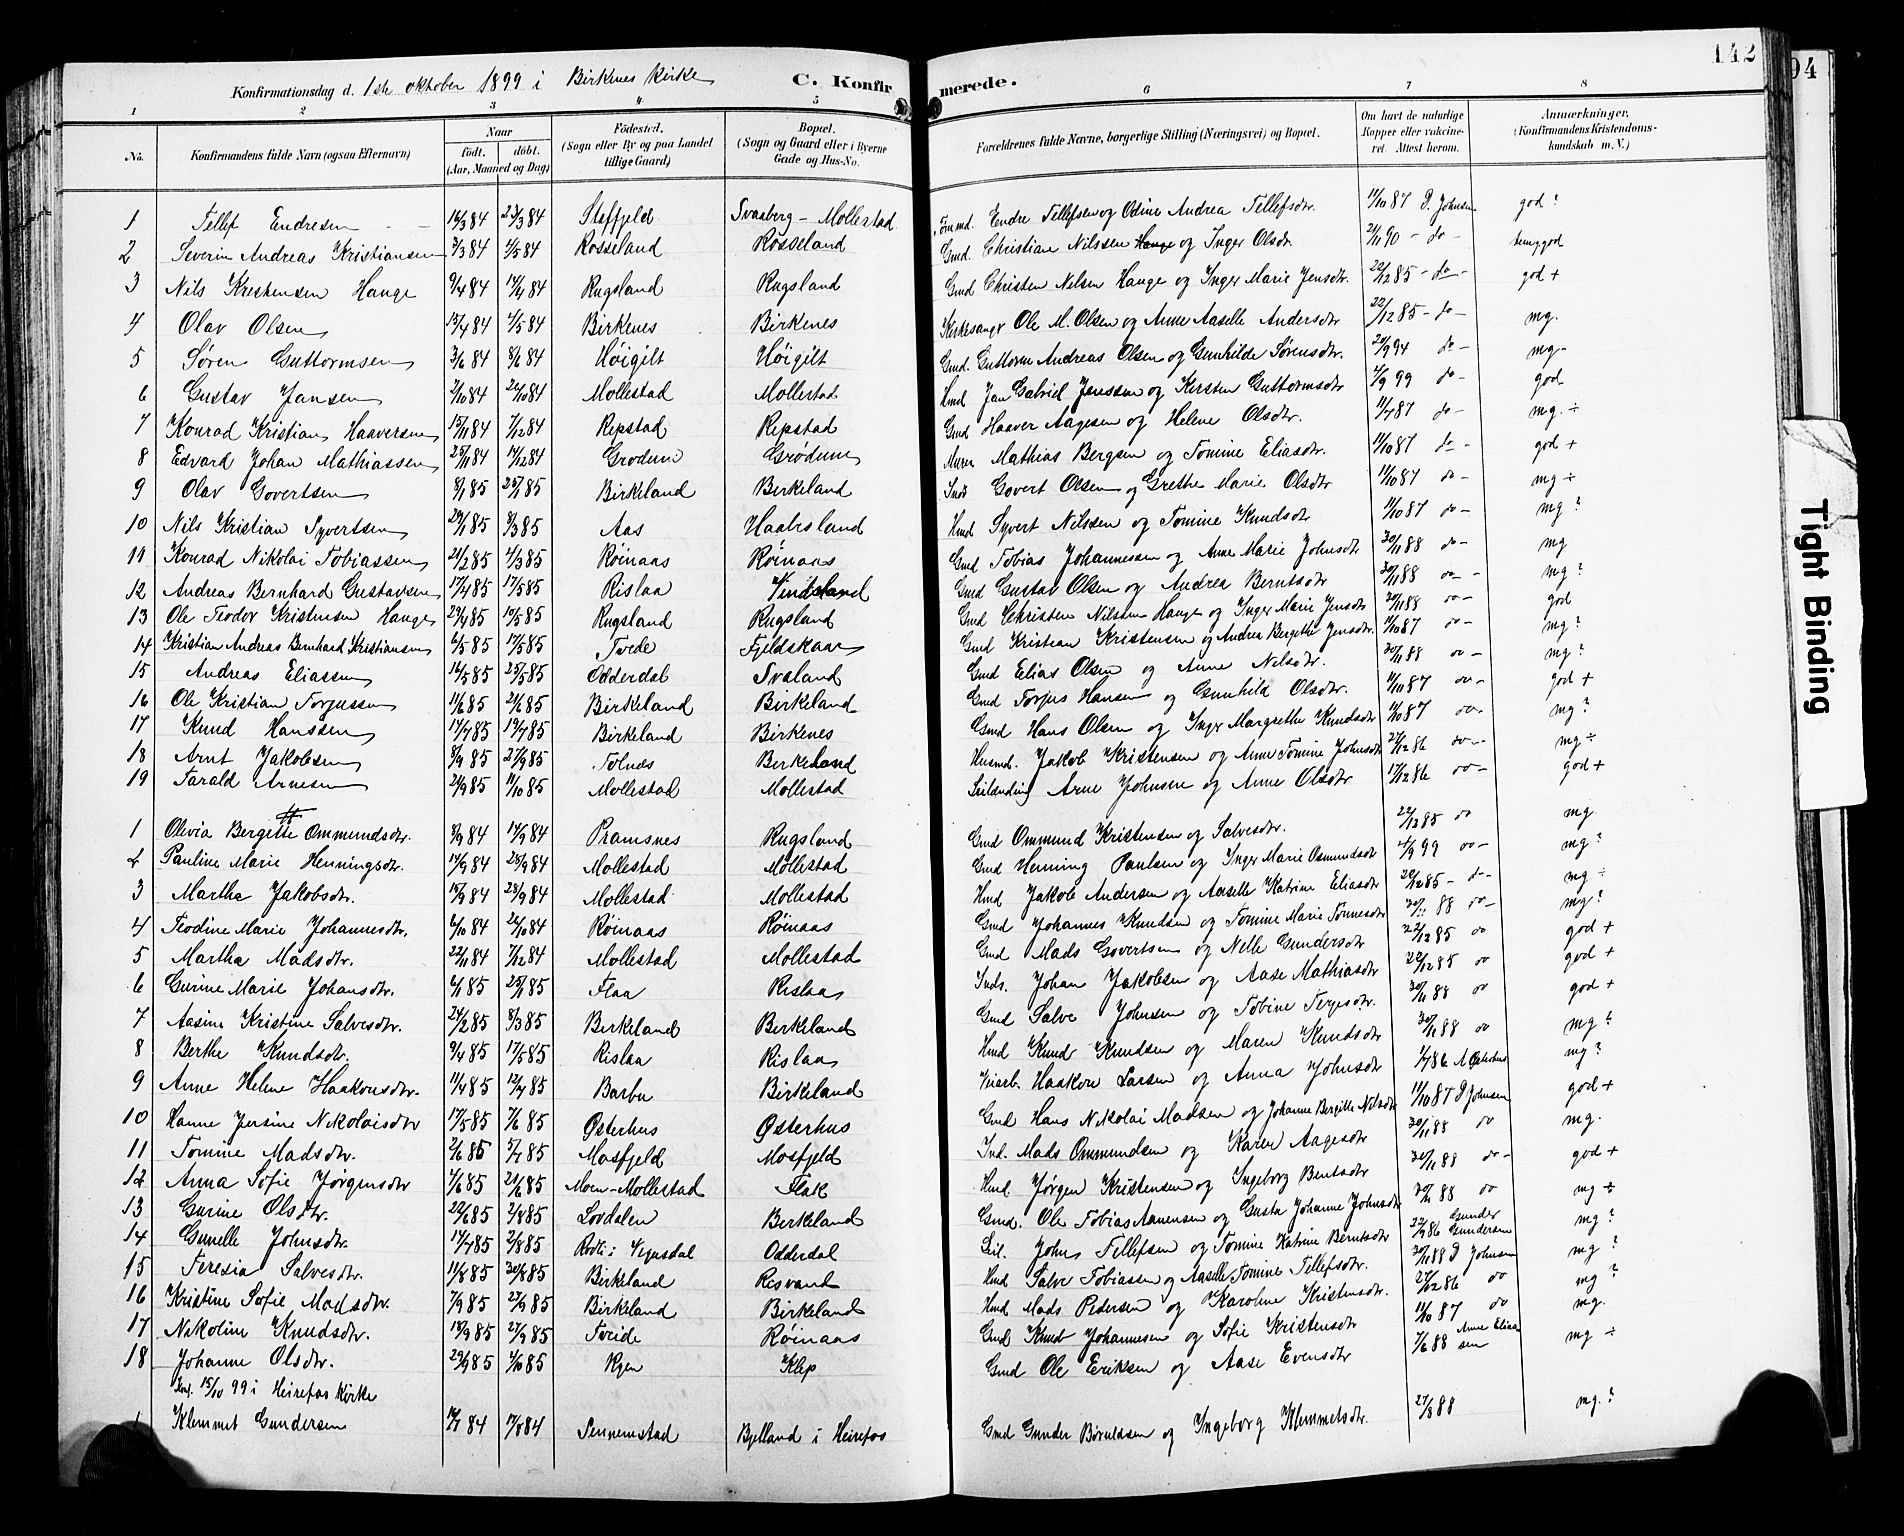 142
94
Konfirmationsdag d. 1ste oktober 1899 i Birkenes Kirke C. Konfirmerede.
1 2 3 4 5 6 7 8
No. Konfirmandens fulde Navn (ogsaa Efternavn) Naar født. døbt. (Aar, Maaned og Dag) Fødested. (Sogn eller By og paa Landet tillige Gaard) Bopæl. (Sogn og Gaard eller i Byerne Gade og Hus-No. Forældrenes fulde Navne, borgerlige Stilling (Næringsvei) og Bopæl. Om havt de naturlige Kopper eller vaccineret. Attest herom. Anmærkninger. (Konfirmandens Kristendomskundskab m. V.)
1 Tellef Endresen 16/3 84 23/3 84 Stoffjeld Svaaberg - Mollestad Tømmd. Endre Tellefsen og Odine Andrea Tellefsdtr. 11/10 87 D. Johnsen god ?
2 Severin Andreas Kristiansen 3/3 84 4/5 84 Rosseland Rosseland Gmd. Christian Nilssen Hauge og Inger Olsdtr. 21/11 90 - do - temgod
3 Nils Kristensen Hauge 9/4 84 14/4 84 Rugsland Rugsland Gmd Christen Nilsen Hauge og Inger Marie Jensdtr. 22/12 85 - do - god +
4 Olav Olsen 15/4 84 4/5 84 Birkenes Birkenes Kirkesangr Ole M. Olsen og Anne Aaselle Andersdtr 22/12 85 - do - mg.
5 Søren Guttormsen 3/6 84 8/6 84 Høigilt Høigilt Gmd. Guttorm Andreas Olsen og Gunhilde Sørensdtr. 20/9 94 do - mg -
6 Gustav Jansen 2/10 84 26/10 84 Mollestad Mollestad Hmd Jan Gabriel Jenssen og Kersten Guttormsdtr 4/9 99 do - god
7 Konrad Kristian Haaversen 15/11 84 7/12 84 Repstad Repstad Gmd Haaver Aagesen og Helene Olsdtr. 11/7 87 do - mg. ÷
8 Edvard Johan Mathiassen 25/11 84 14/12 84 Grødum Grødum Murer Mathias Bergsen og Tomine Eliasdtr. 11/10 87 do - god +
9 Olav Govertsen 8/1 85 25/1 85 Birkeland Birkeland Inds Govert Olsen og Grethe Marie Olsdtr 11/10 87 do - mg ÷
10 Nils Kristian Syvertsen 29/1 85 8/3 85 Aas Haabesland Hmd Syvert Nilssen og Tomine Knudsdtr 11/10 87 do - mg ?
11 Konrad Nikolai Tobiassen 21/2 85 4/3 85 Røinaas Røinaas Gmd Tobias Johannessen og Anne Marie Johnsdtr 30/11 88 do - mg
12 Andreas Bernhard Gustavsen 17/4 85 17/5 85 Rislaa Vindsland Gmd Gustav Olsen og Andrea Berntsdtr 30/11 88 do - mg ?
13 Ole Teodor Kristensen Hauge 29/4 85 10/5 85 Rugsland Rugsland Gmd Christen Nilssen Hauge og Inger Marie Jensdtr 30/11 88 do - god
14 Kristian Andreas Bernhard Kristiansen 6/5 85 17/5 85 Tvede Fjeldskaar Gmd Kristian Kristensen og Andrea Bergette Jensdtr. 11/10 87 do - mg ?
15 Andreas Eliassen 16/5 85 25/5 85 Odderdal Svaland Gmd Elias Olsen og Anne Nilsdtr. 30/11 88 do - mg ?
16 Ole Kristian Torjussen 11/6 85 21/6 85 Birkeland Birkeland Gmd Torjus Hansen og Gunhild Olsdtr. 11/10 87 do - god +
17 Knud Hanssen 14/7 85 19/7 85 Birkeland Birkenes Gmd Hans Olsen og Inger Margrethe Knudsdtr 11/10 87 do - mg ?
18 Arnt Jakobsen 8/9 85 27/9 85 Tolnæs Birkeland Husmd. Jakob Kristensen og Anne Tomine Johnsdtr 27/12 86 do - mg ÷
19 Tarald Arnesen 24/9 85 11/10 85 Mollestad Mollestad Leilænding Arne Johnsen og Anne Olsdtr 17/12 86 do - god +
1 Olivia Bergitte Ommundsdtr. 3/9 84 14/9 84 Pramsnes Rugsland Gmd Ommund Kristensen og Salvesdtr. 22/12 85 do mg.
2 Pauline Marie Henningsdtr. 14/9 84 28/9 84 Mollestad Mollestad Gmd Henning Paulsen og Inger Marie Osmundsdtr 4/9 99 do - mg ?
3 Martha Jakobsdtr. 15/9 84 28/9 84 Mollestad Mollestad Hmd Jakob Andersen og Aaselle Katrine Eliasdtr 20/12 85 - do - mg ÷
4 Teodine Marie Johannesdtr. 6/10 84 26/10 84 Røinaas Røinaas Gmd Johannes Knudsen og Tomine Marie Tønnesdtr 30/11 88 do - mg ?
5 Martha Madsdtr. 22/11 84 7/12 84 Mollestad Mollestad Gmd Mads Govertsen og Nelle Gundersdtr 22/12 85 do god +
6 Gurine Marie Johansdtr. 6/1 85 25/1 85 Flaa Rislaa Inds. Johan Jakobsen og Aase Mathiasdtr 22/12 85 do god +
7 Aasine Kristine Salvesdtr. 24/2 85 8/3 85 Birkeland Birkeland Gmd Salve Johnsen og Tobine Terjesdtr. 30/11 88 do god +
8 Berthe Knudsdtr. 9/4 85 17/5 85 Rislaa Rislaa Hmd Knud Knudsen og Maren Knudsdtr 30/11 88 do mg ?
9 Anne Helene Haakonsdtr. 11/4 85 12/4 85 Barbu Birkeland Veiarb. Haakon Larsen og Anna Johnsdtr 1/7 86 mg ?
10 Hanne Jensine Nikolaisdtr 17/5 85 7/6 85 Østerhus Østerhus Gmd Hans Nikolai Madsen og Johanne Bergitte Nilsdtr 11/10 87 D Johnsen god +
11 Tomine Madsdtr. 2/6 85 5/7 85 Mosfjeld Mosfjeld Ind. Mads Ommundsen og Karen Aagesdtr 30/11 88 do mg.
12 Anna Sofie Jørgensdtr 4/6 85 21/6 85 Moen - Mollestad Flak Hmd. Jørgen Kristensen og Ingeborg Bentsdtr 30/11 88 do - god +
13 Gurine Olsdtr. 22/6 85 2/8 85 Lovdalen Birkeland Gmd. Ole Tobias Aanensen og Gusta Johanne Johnsdtr 30/11 88 do mg ÷
14 Gunelle Johnsdtr. 14/7 85 2/8 85 i Vegusdal Odderdal Leil. John Tellefsen og Tomine Katrine Berntsdtr 22/9 86 Gunder Gundersen mg ?
15 Teresia Salvesdtr. 11/8 85 30/8 85 Birkeland Risvand Hmd Salve Tobiassen og Aaselle Tomine Tellefsdtr. 30/11 88 D Johnsen mg ?
16 Kristine Sofie Madsdtr. 7/9 85 27/9 85 Birkeland Birkeland Hmd Mads Pedersen og Karoline Kristensdtr. 27/12 86 do mg ?
17 Nikoline Knudsdtr. 18/9 85 27/9 85 Tveide Røinaas Gmd Knud Johannesen og Sofie Kristensdtr 11/10 87 do mg.
18 Johanne Olsdtr. 29/9 85 4/10 85 Ryen Klep Gmd Ole Eriksen og Aase Evensdtr 7/6 88 Anne Eliassen mg ÷
Konf. 15/10 99 i Heirefos Kirke
1 Klemmet Gundersen 17/7 84 17/8 84 Sennumstad Bjelland i Heirefos Gmd Gunder Børuldsen og Ingeborg Klemmetsdtr. 27/8 88 mg. ?
Tight Binding